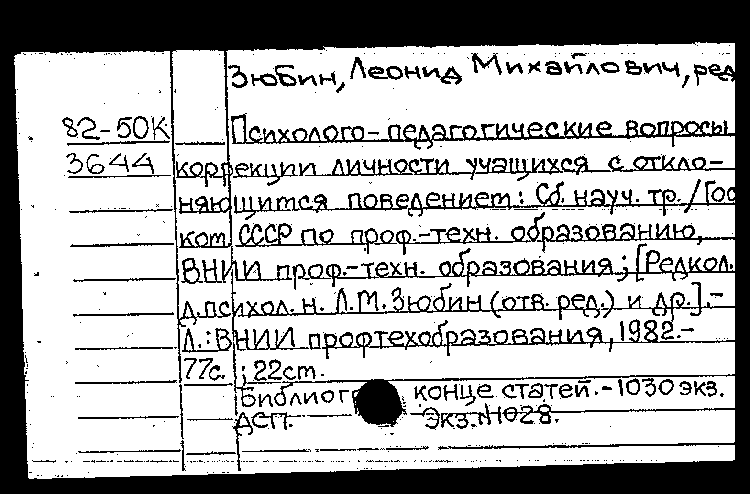 Зюбин, Леонид Михайлович, ред
82-50К Психолого-педагогические вопросы
3644 коррекции личности учащихся с откло-
няющимся поведением: Сб. науч. тр./Гос
ком. СССР по проф.-техн. образованию,
ВНИИ проф.-техн. образования; [Редкол.
д.психол.н. Л.М.Зюбин (отв. ред.) и др.].-
Л.: ВНИИ профтехобразования, 1982.-
77с. ; 22см.
Библиогр конце статей.-1030 экз.
ДСП. Экз.№1028.